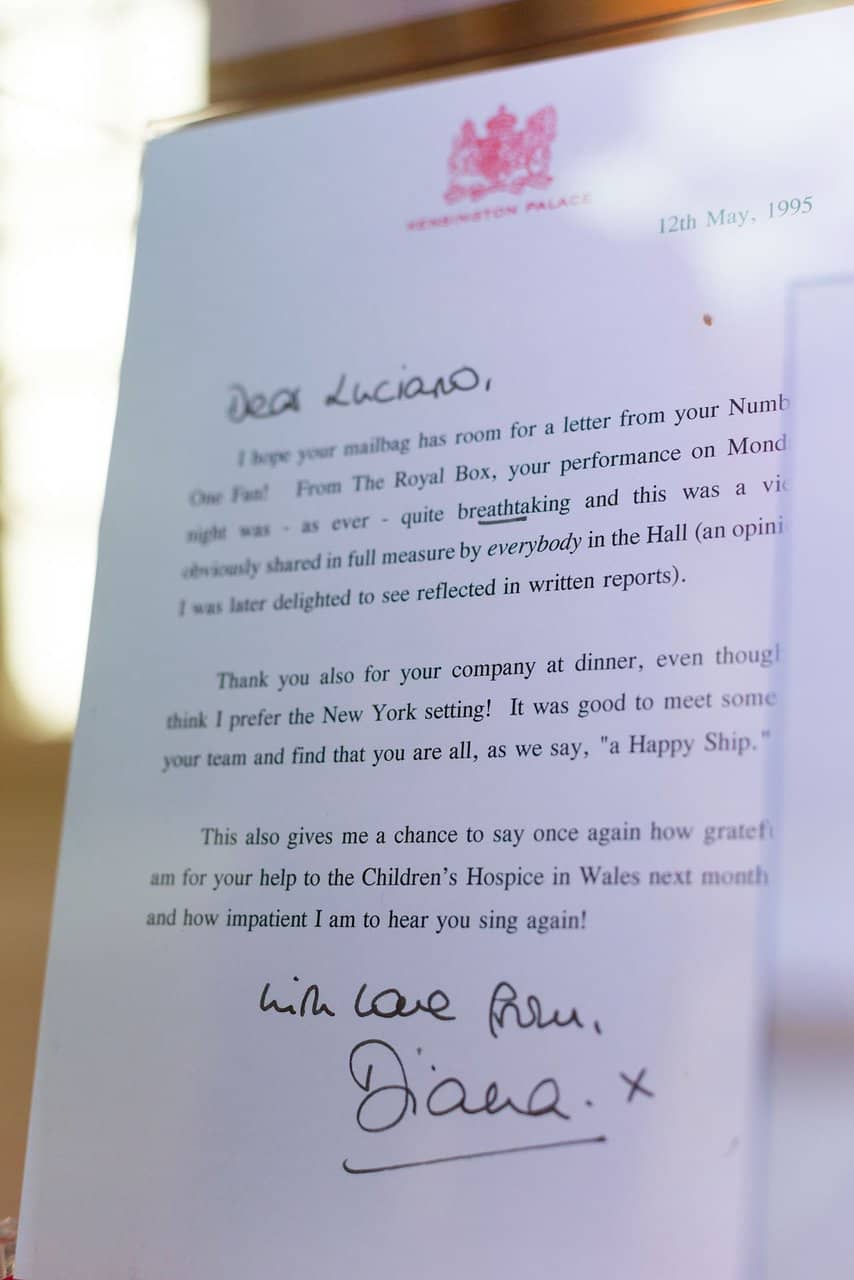 KENSINGTON PALACE
12th May, 1995
Dear Luciano,
I hope your mailbag has room for a letter from your Numb
One Fan! From The Royal Box, your performance on Mond
night was - as ever - quite breathtaking and this was a vie
obviously shared in full measure by everybody in the Hall (an opini
I was later delighted to see reflected in written reports).
Thank you also for your company at dinner, even though
think I prefer the New York setting! It was good to meet some
your team and find that you are all, as we say, "a Happy Ship."
This also gives me a chance to say once again how gratefu
am for your help to the Children's Hospice in Wales next month
and how impatient I am to hear you sing again!
with love from,
Diana. x